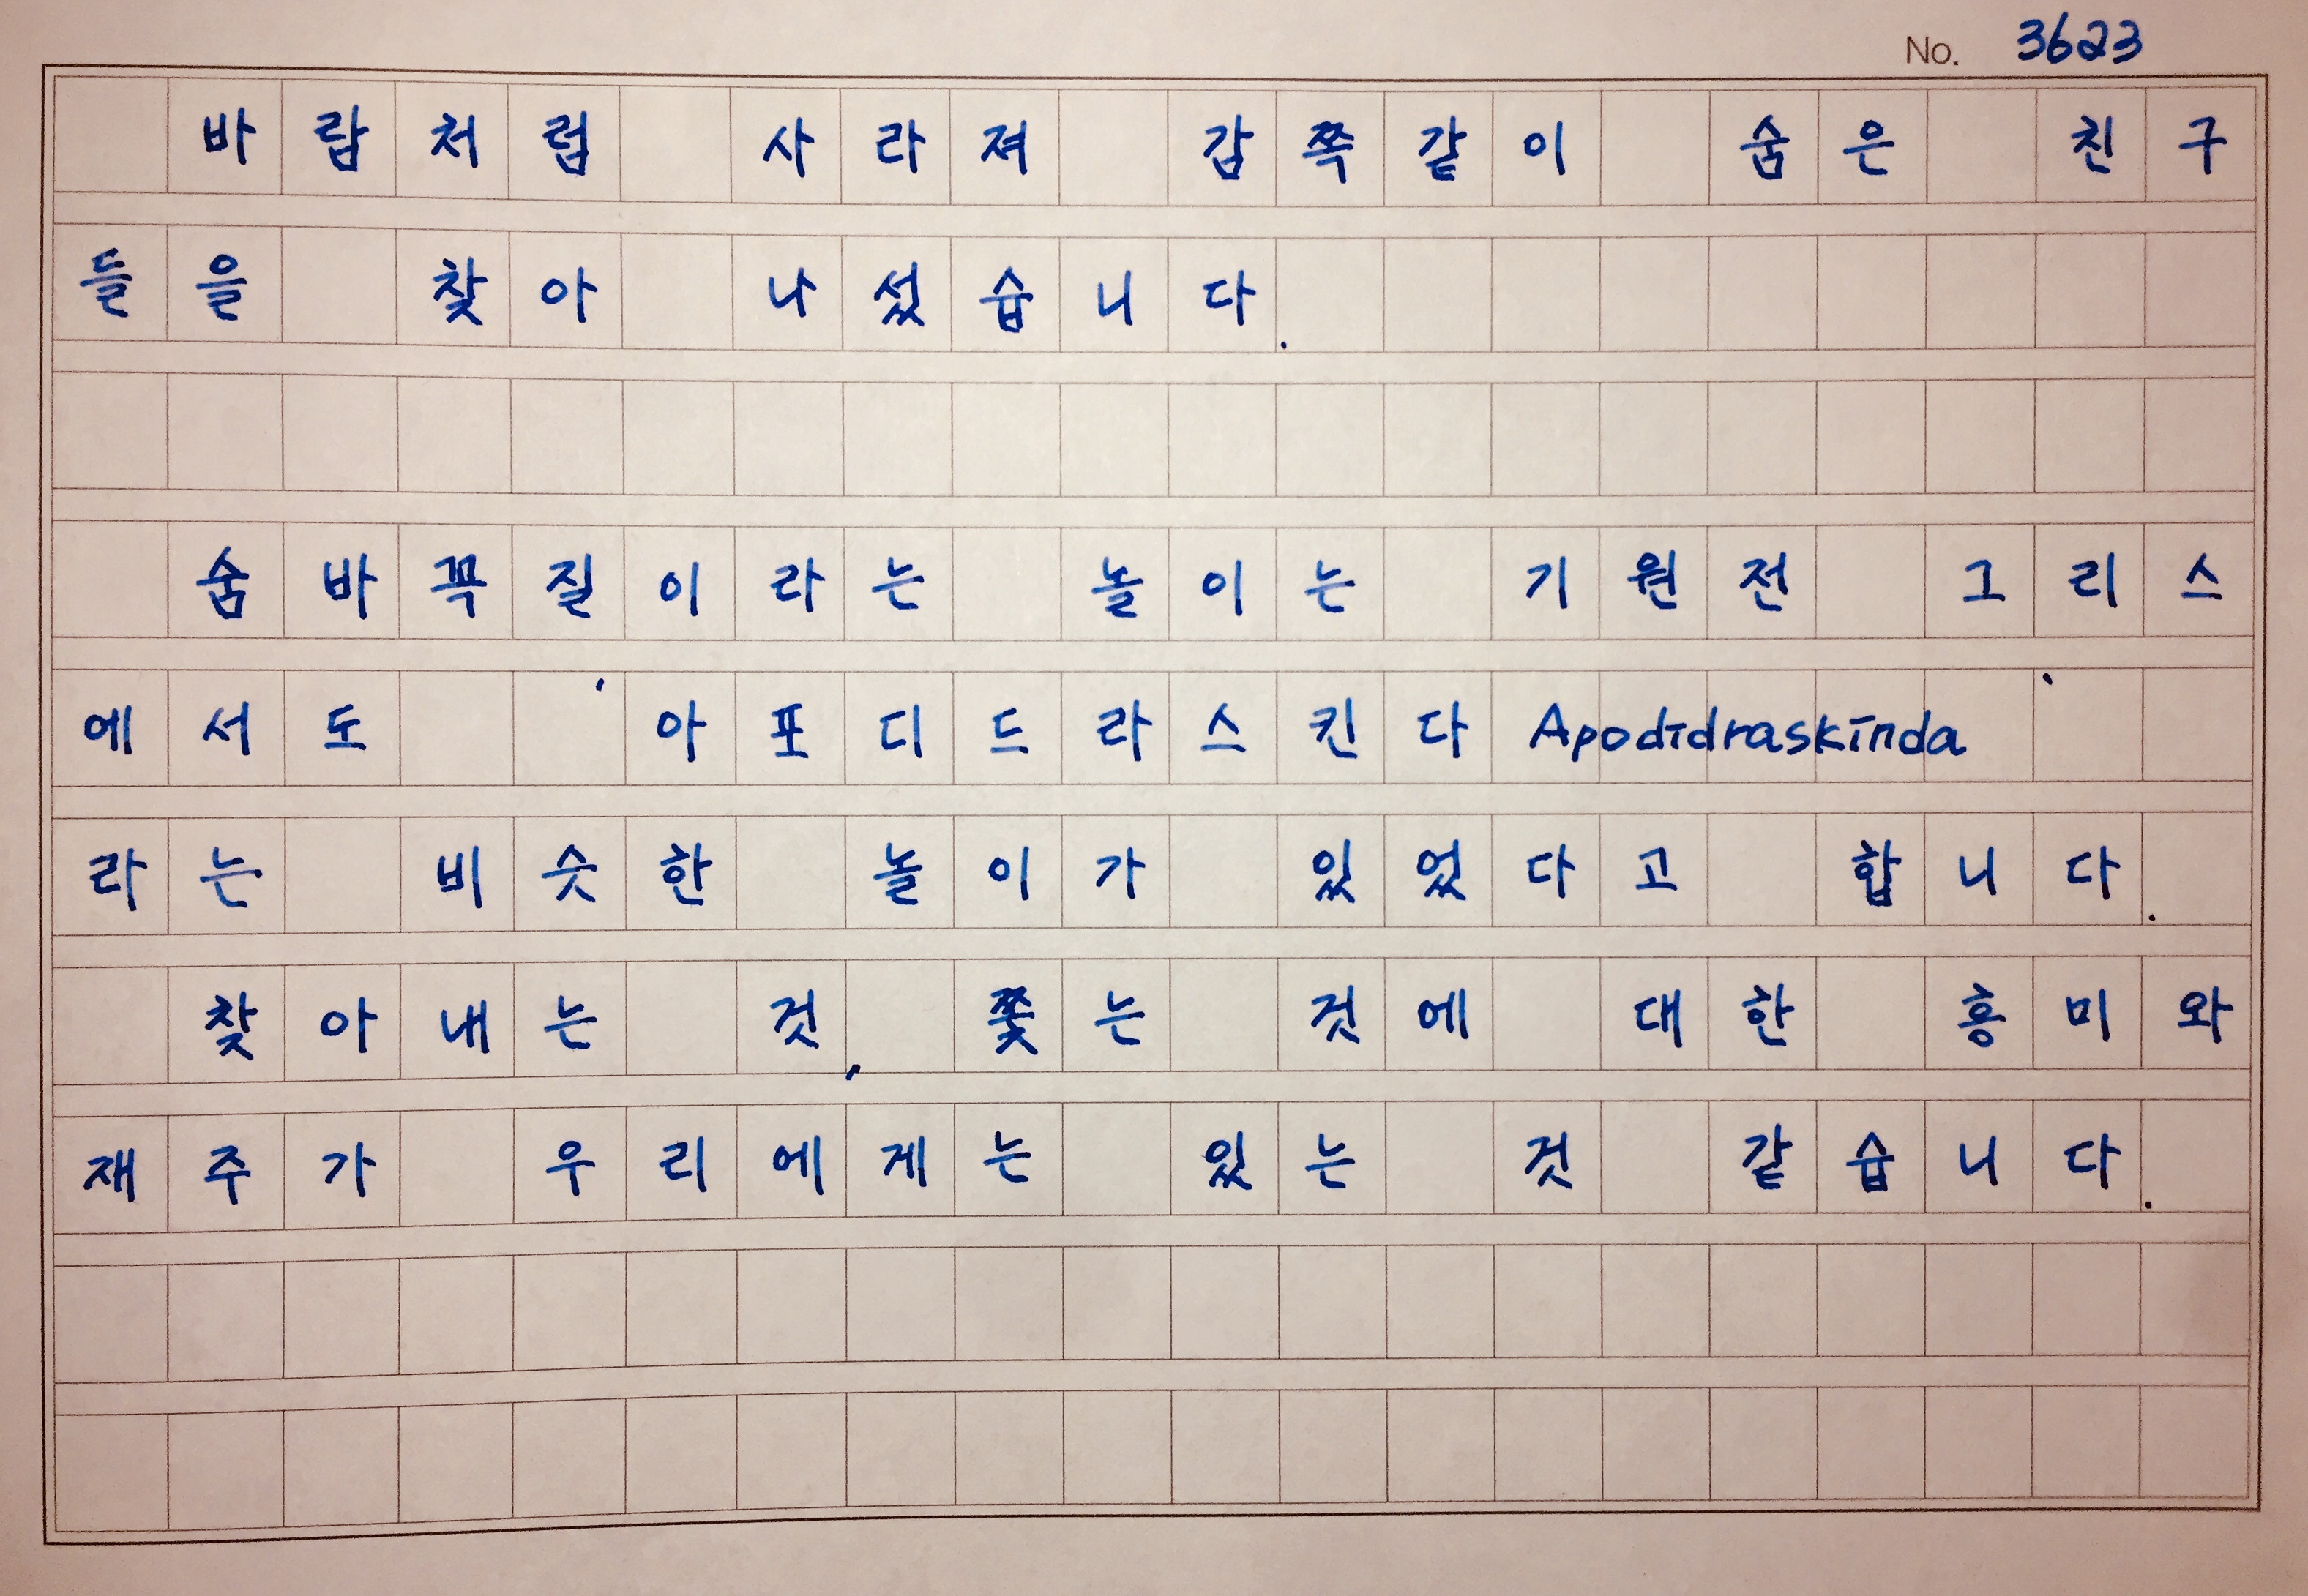 No. 3623
바람처럼 사라져 감쪽같이 숨은 친구
들을 찾아 나섰습니다.
숨바꼭질이라는 놀이는 기원전 그리스
에서도 '아포디드라스킨다 Apodidraskinda'
라는 비슷한 놀이가 있었다고 합니다.
찾아내는 것, 쫓는 것에 대한 흥미와
재주가 우리에게는 있는 것 같습니다.